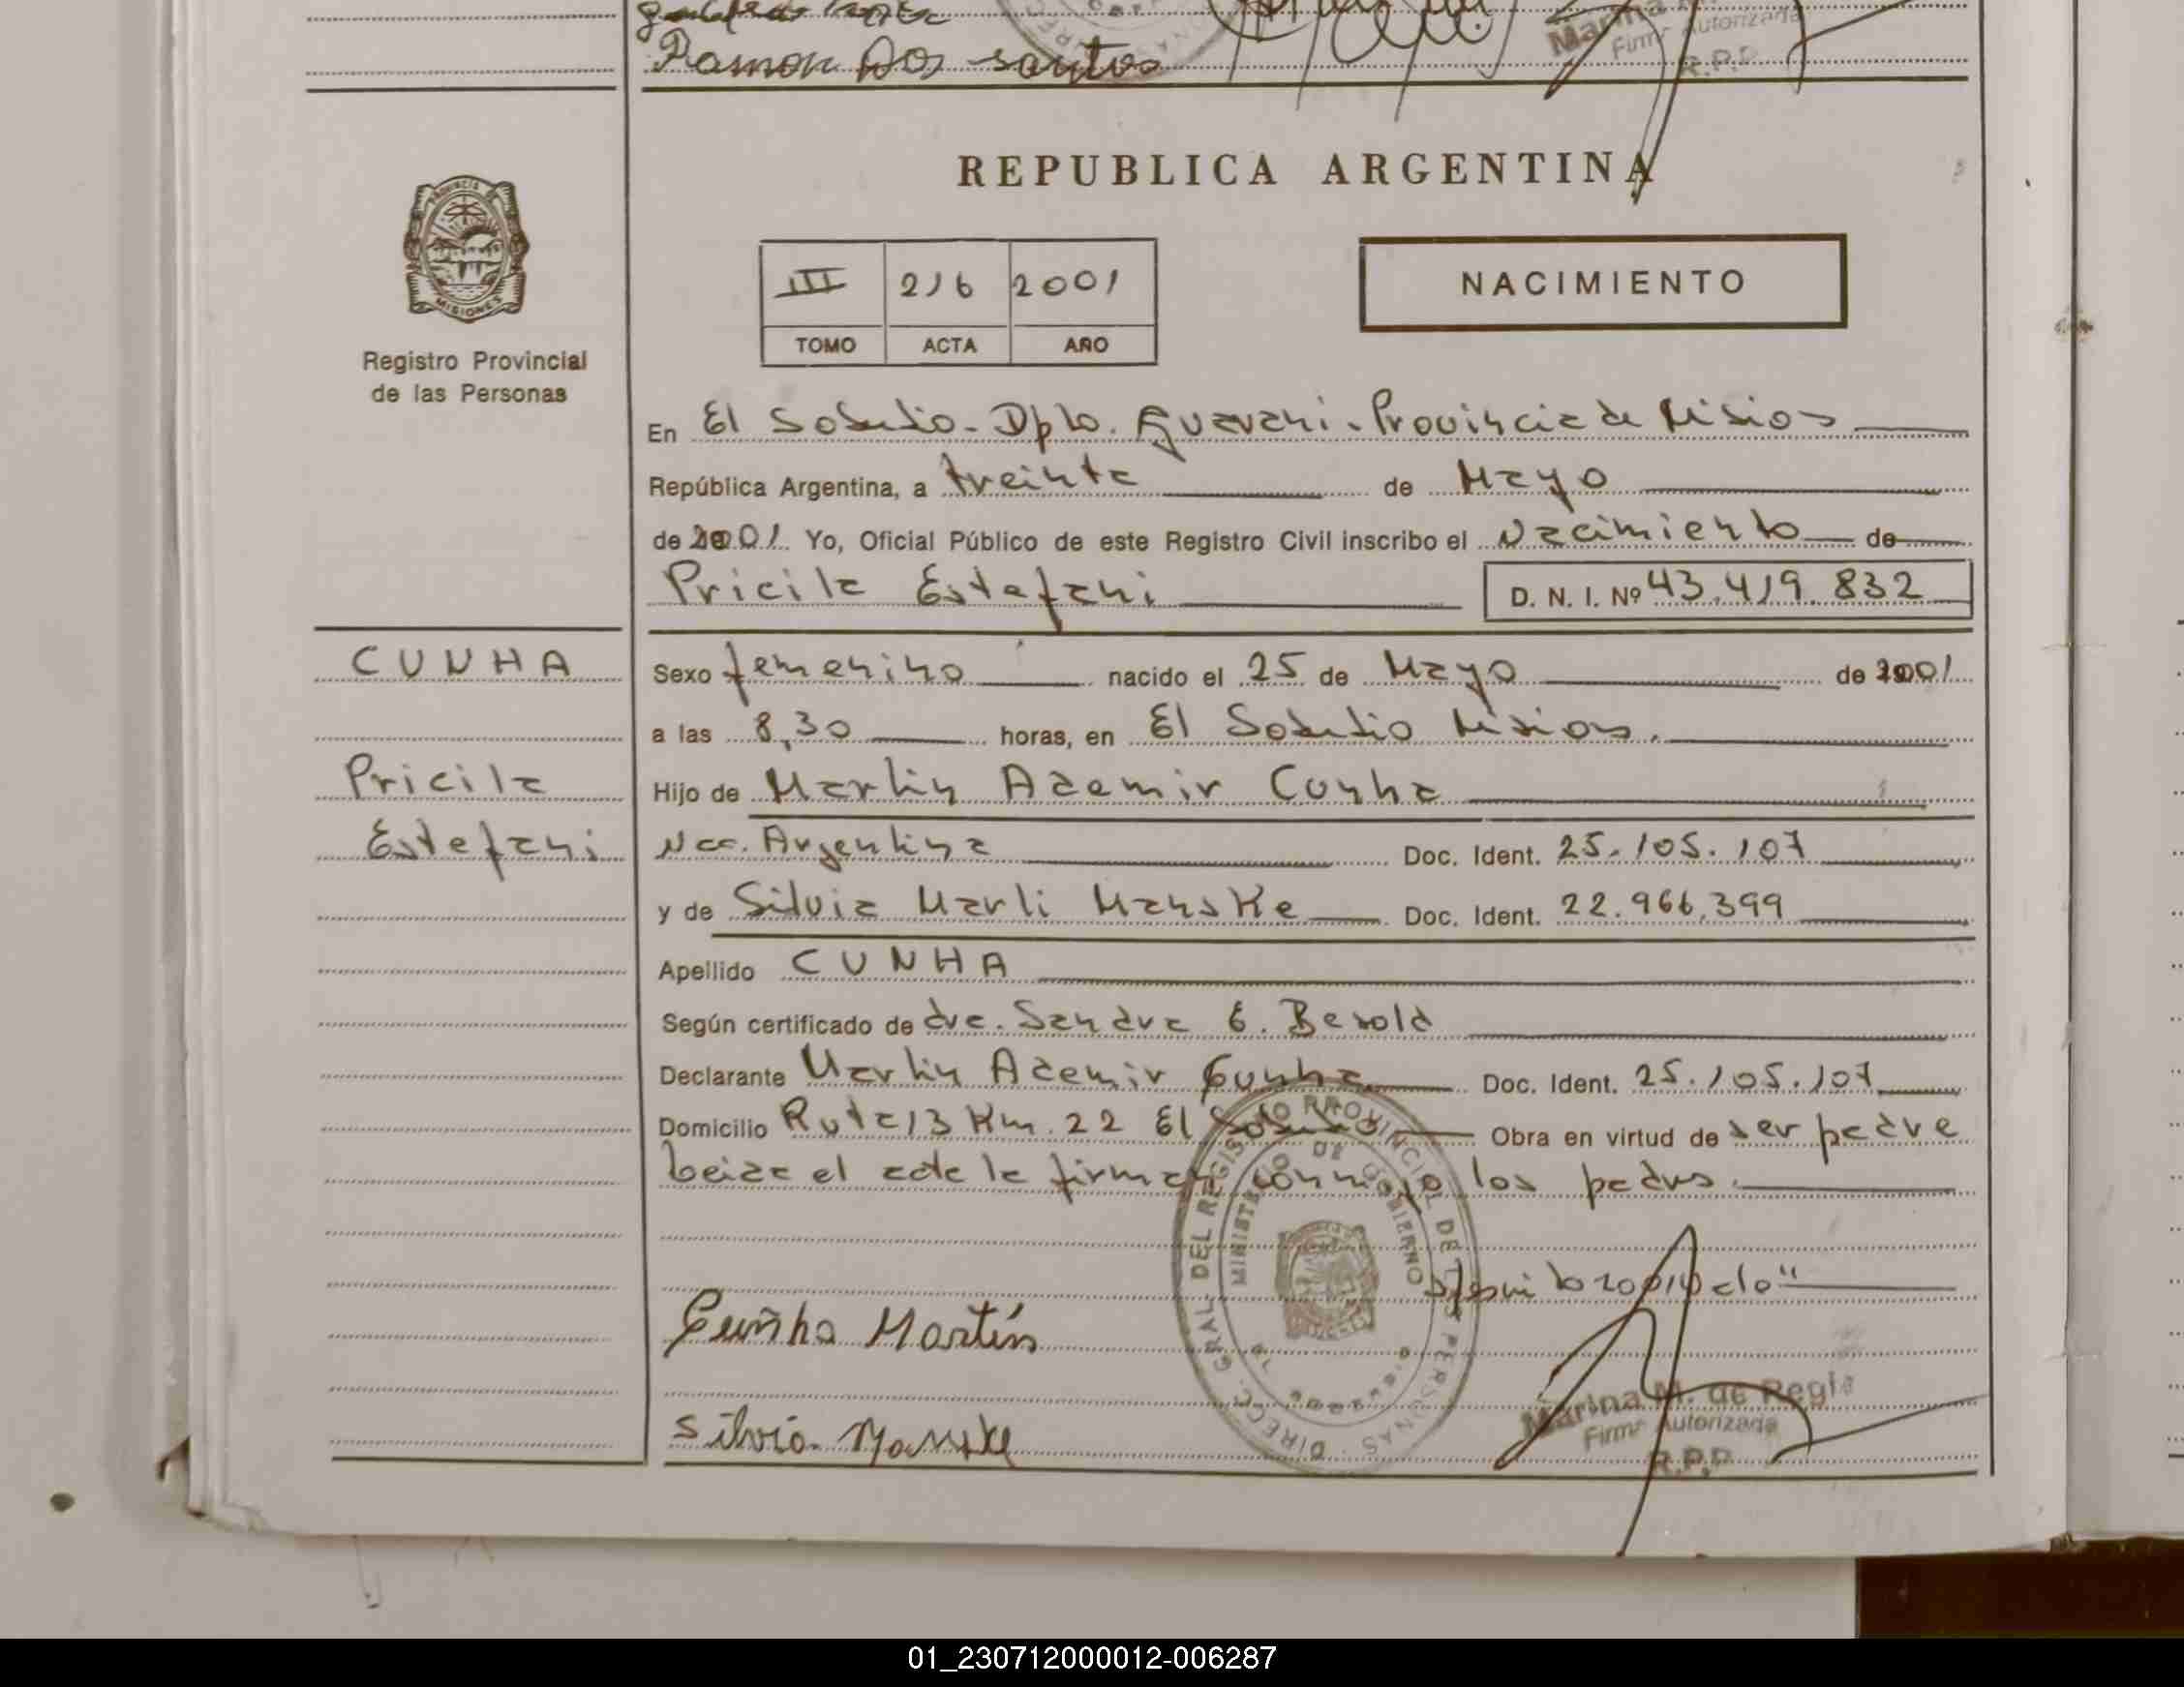 Ramon Dos santos
Marina M.
Firma Autorizada
R.P.P.
REPUBLICA ARGENTINA
PROVINCIA DE
MISIONES
Registro Provincial
de las Personas
III 216 2001
TOMO ACTA AÑO
NACIMIENTO
En El Soberbio - Dpto. Guarani. Provincia de Misiones
República Argentina, a treinta de Mayo
de 2001. Yo, Oficial Público de este Registro Civil inscribo el Nacimiento de
Pricila Estefani D. N. I. Nº 43.419.832
CUNHA
Pricila
Estefani
Sexo femenino nacido el 25 de Mayo de 2001
a las 8,30 horas, en El Soberbio Misiones.
Hijo de Martin Ademir Cunha
Nac. Argentina Doc. Ident. 25.105.107
y de Silvia Marli Manske Doc. Ident. 22.966.399
Apellido CUNHA
Según certificado de dra. Sandra E. Berold
Declarante Martin Ademir Cunha Doc. Ident. 25.105.107
Domicilio Ruta 13 Km. 22 El Soberbio Obra en virtud de ser padre
leida el acta la firman conmigo los padres.
DIRECC. GRAL. DEL REGISTRO PROVINCIAL DE LAS PERSONAS
MINISTERIO DE GOBIERNO
Cuñha Martín
Silvia Manske
Marina M. de Regla
Firma Autorizada
R.P.P.
01_230712000012-006287